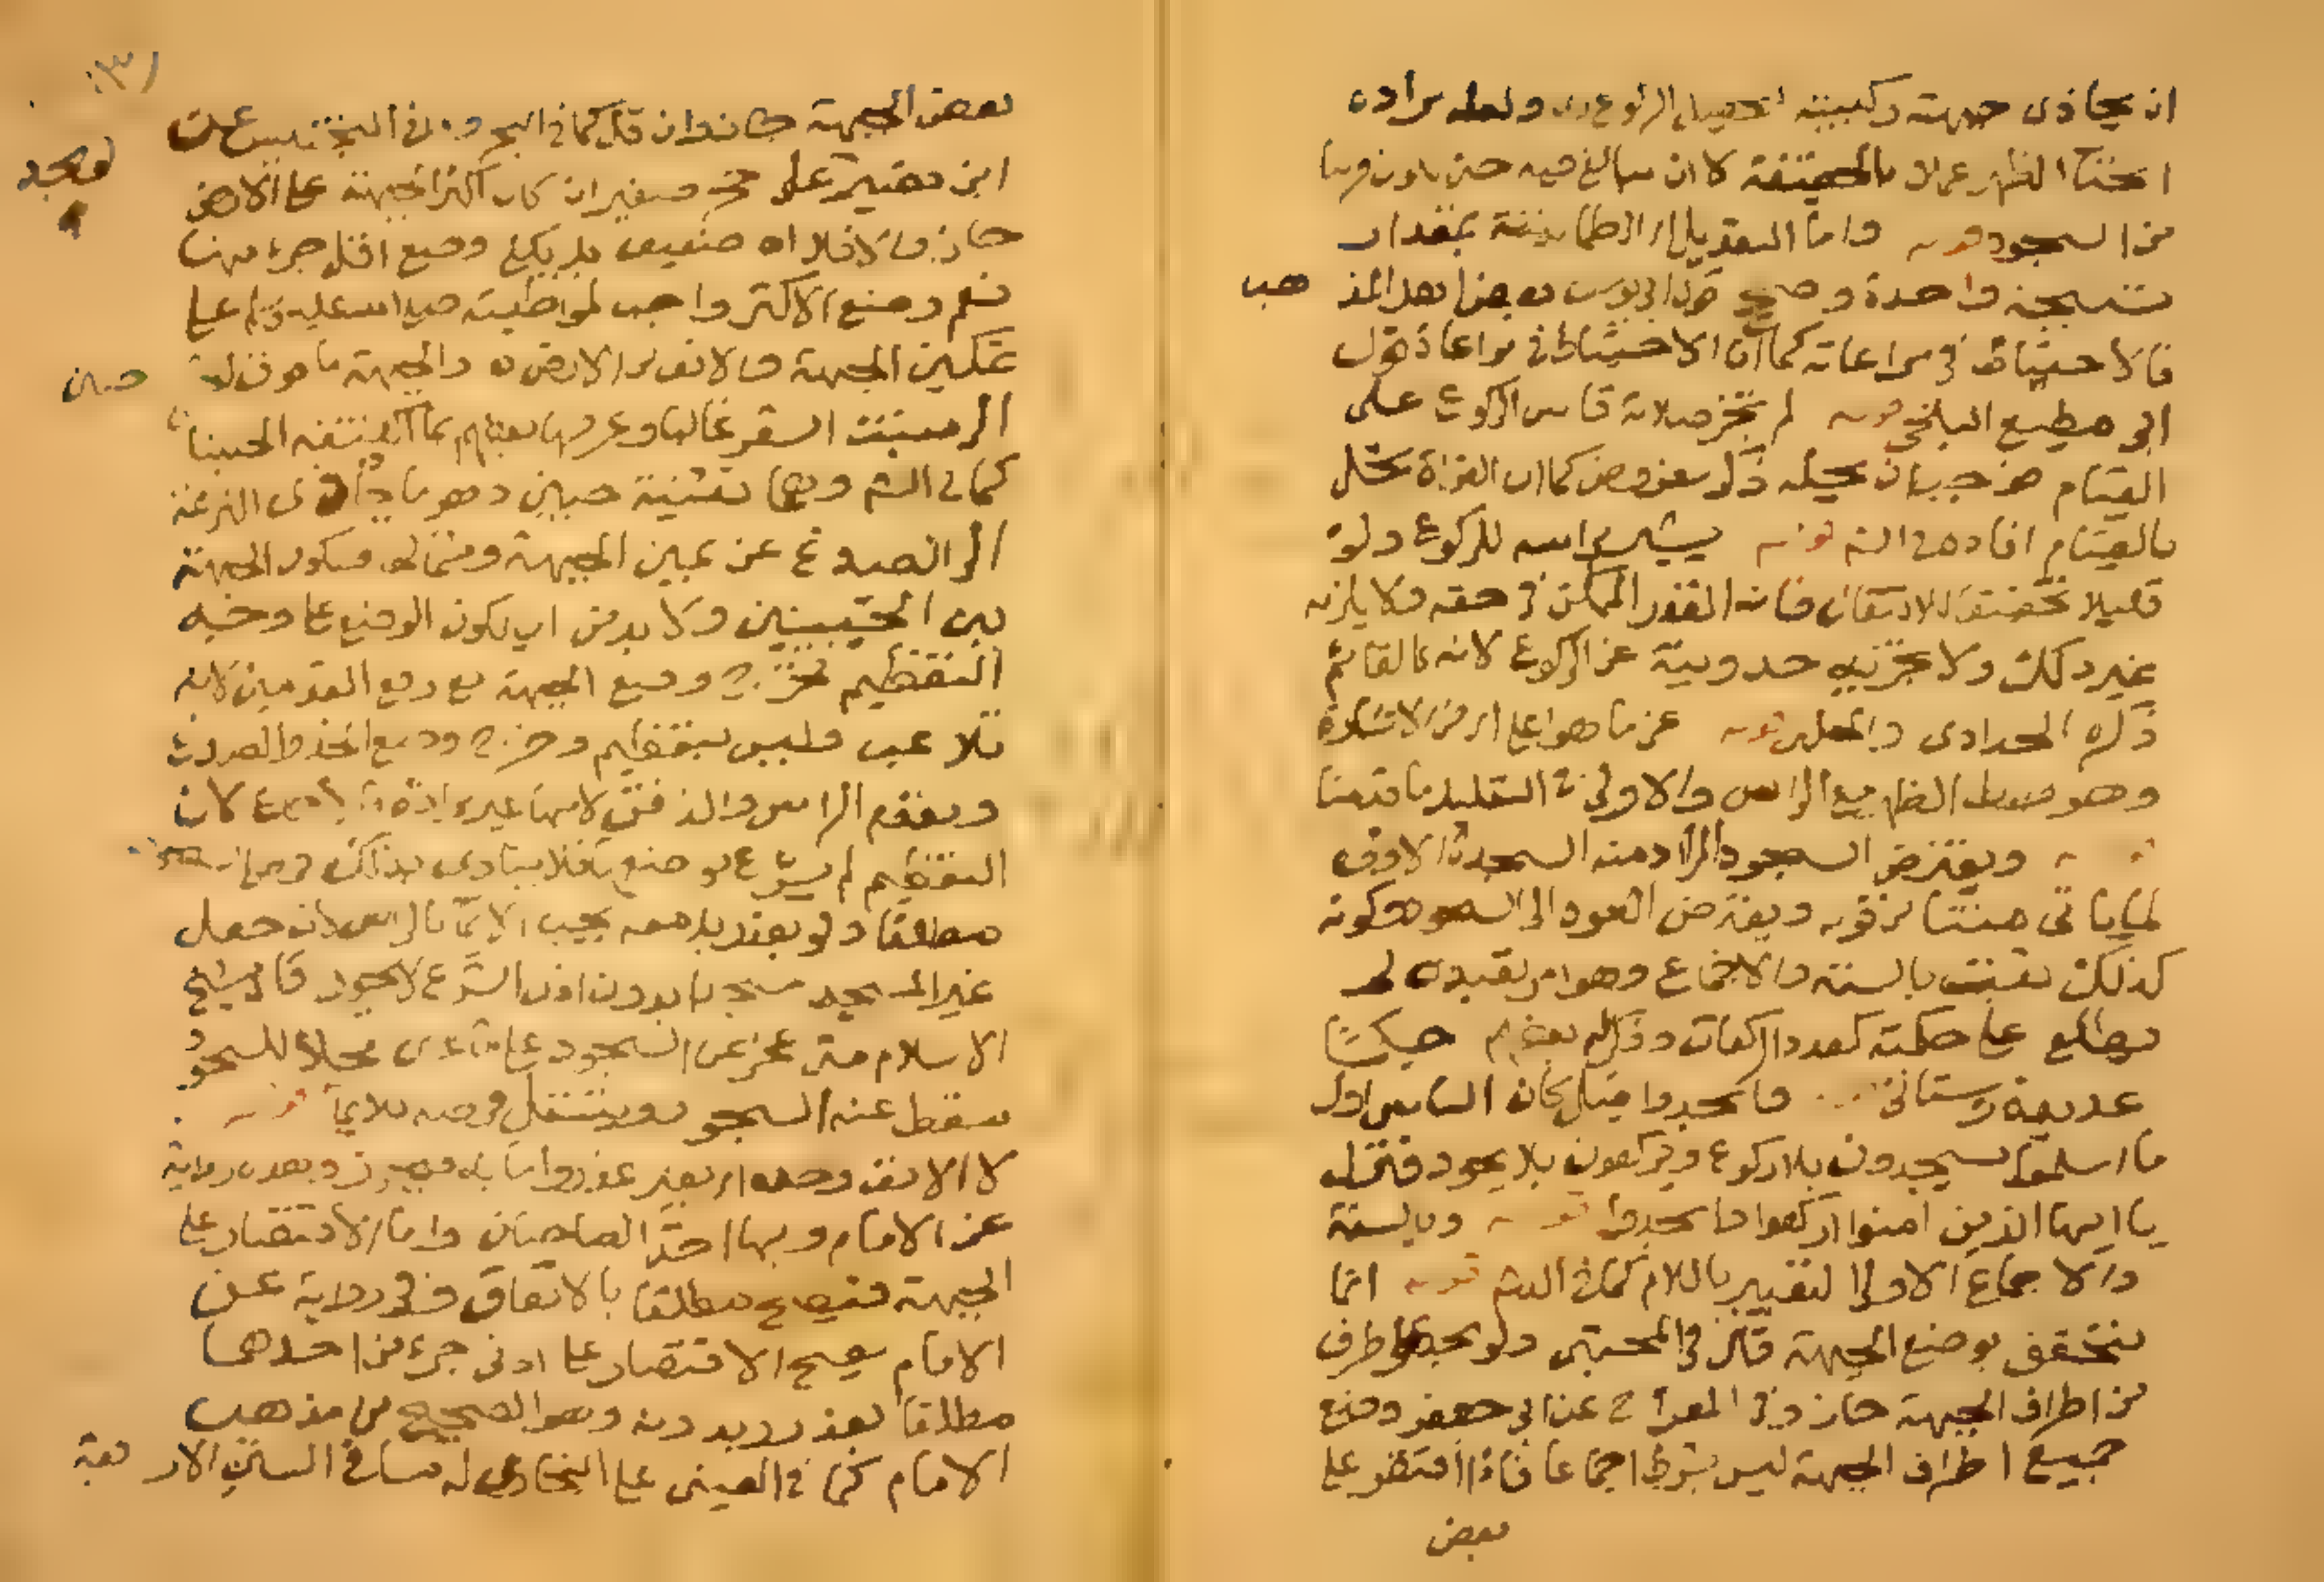 ان يحاذى جبهته ركبتيه لتحصيل الركوع اه ولعله مراده
انحناء الظهر عملا بالحقيقة لا ان يبالغ فيه حتى يكون قريبا
من السجود قوله واما التعديل اى الطمانينة بمقدار
تسبيحة واحدة وصحح قول ابى يوسف بعض اهل المذ هب
فالاحتياط فى مراعاته كما ان الاحتياط فى مراعاة قول
ابى مطيع البلخى قوله لم تجز صلاته قاس الركوع على
القيام من حيث ان محله ذكر مفروض كما ان القراءة محل
بالقيام افاده فى الشرح قوله يشير براسه للركوع ولو
قليلا تحقيقا للانتقال فانه القدر الممكن فى حقه ولا يلزمه
غير ذلك ولا تجزئه حدوبته عن الركوع لانه كالقائم
ذكره الحدادى والحلبى قوله عن ما هو اعلى اى من الاشارة
وهو بسط الظهر مع الراس والاولى فى التقليد ما قدمنا
قوله ويفترض السجود المراد منه السجدة الاولى
لما ياتى متنا من قوله ويفترض العود الى السجود وكونه
كذلك ثبت بالسنة والاجماع وهو امر تعبدى لم
يطلع على حكمته كعدد الركعات وذكر له بعضهم حكما
فاسجدوا قيل كان الناس اول
ما اسلموا يسجدون بلا ركوع ويركعون بلا سجود فنزل
يا ايها الذين امنوا اركعوا واسجدوا قوله وبالسنة
والاجماع الاولى التعبير باللام كما فى الشرح قوله انما
يتحقق بوضع الجبهة قال فى المجتبى ولو سجد على طرف
من اطراف الجبهة جاز وفى المعراج عن ابى جعفر وضع
جميع اطراف الجبهة ليس بشرط اجماعا فاذا اقتصر على
بعض
بعض الجبهة جاز وان قل كما فى البحر وفى التجنيس عن
ابن نصير على حجر صغير ان كان اكثر الجبهة على الارض
لو سجد
جاز والا فلا اه ضعيف بل يكفى وضع اقل جزء منها
نعم وضع الاكثر واجب لمواظبته صلى الله عليه وسلم على
تمكين الجبهة والانف من الارض اه والجبهة ما فوق الحاجبين
الى منبت الشعر غالبا وعرفها بعضهم بما اكتنفه الجبينان
كما فى الشرح وهما تثنية جبين وهو ما يحاذى النزعة
الى الصدغ عن يمين الجبهة وشمالها فتكون الجبهة
بين الجبينين ولا بد من ان يكون الوضع على وجه
التعظيم فخرج وضع الجبهة مع رفع القدمين لانه
تلاعب وليس بتعظيم وخرج وضع الخد والصدغ
ومقدم الراس والذقن لانها غير مرادة
التعظيم لم يشرع بوضعها فلا يتادى بذلك فرض السجود
مطلقا ولو بعذر بل معه يجب الايماء بالراس لان جعل
غير المسجد مسجدا بدون اذن الشرع لا يجوز قال شيخ
الاسلام متى عجز عن السجود على ما عين محلا للسجود
سقط عنه السجود وينتقل فرضه للايماء قوله
لا الانف وحده اى بغير عذر واما به فيجوز وبعده رواية
عن الامام وبها اخذ الصاحبان واما الاقتصار على
الجبهة فيصح مطلقا بالاتفاق وفى رواية عن
الامام يصح الاقتصار على ادنى جزء من احدهما
مطلقا بعذر وبدونه وهو الصحيح من مذهب
الامام كما فى العينى على البخارى له وسائر السنن الاربعة